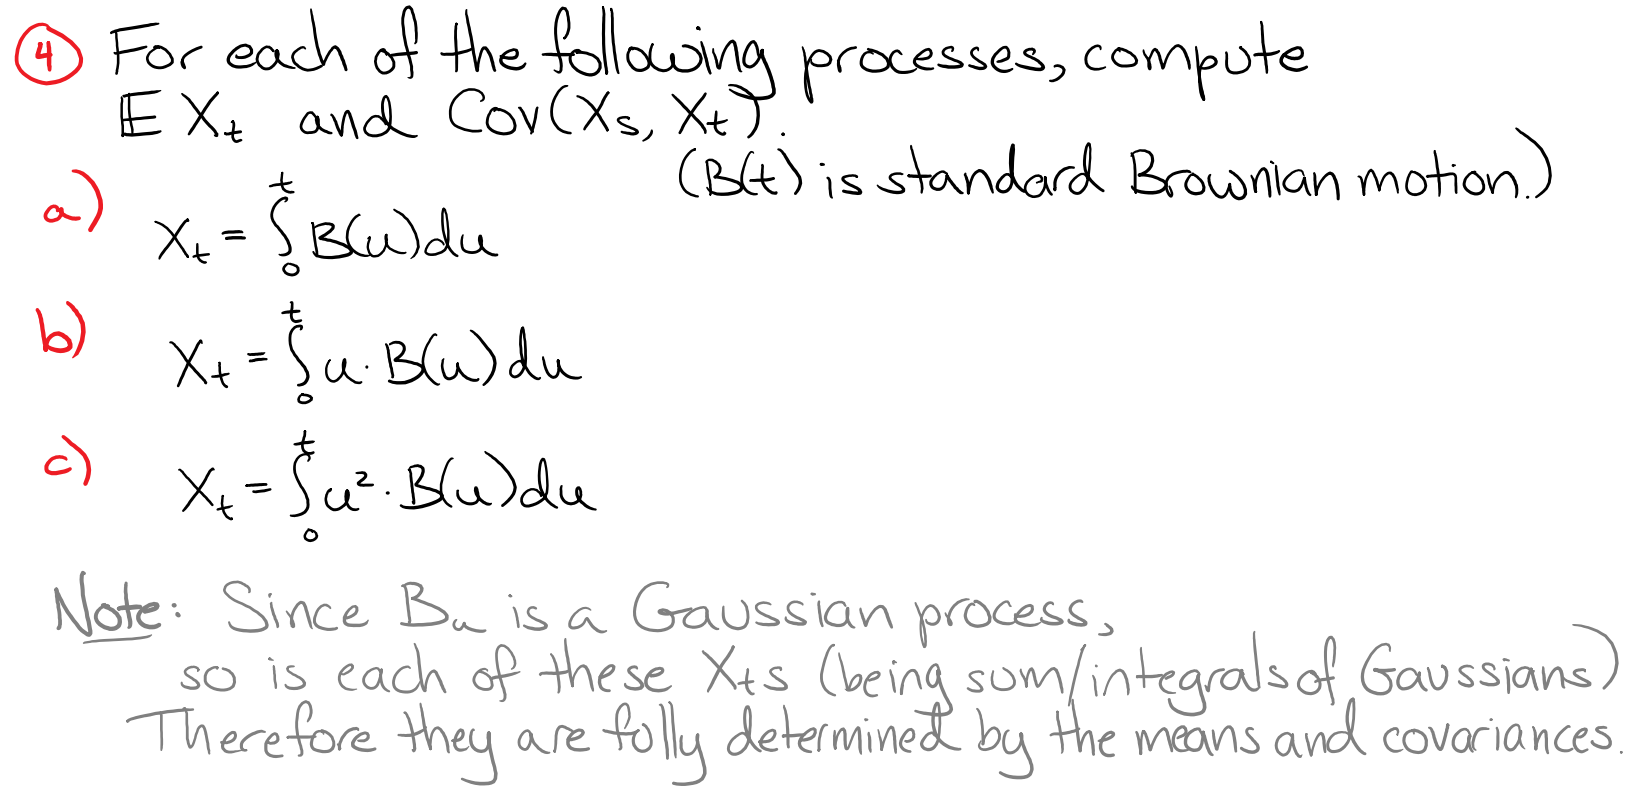 ④ For each of the following processes, compute
𝔼 Xₜ and Cov(Xₛ, Xₜ).
(B(t) is standard Brownian motion.)
a) Xₜ = ∫₀ᵗ B(u)du
b) Xₜ = ∫₀ᵗ u · B(u) du
c) Xₜ = ∫₀ᵗ u² · B(u)du
Note: Since Bᵤ is a Gaussian process,
so is each of these Xₜs (being sum/integrals of Gaussians)
Therefore they are fully determined by the means and covariances.